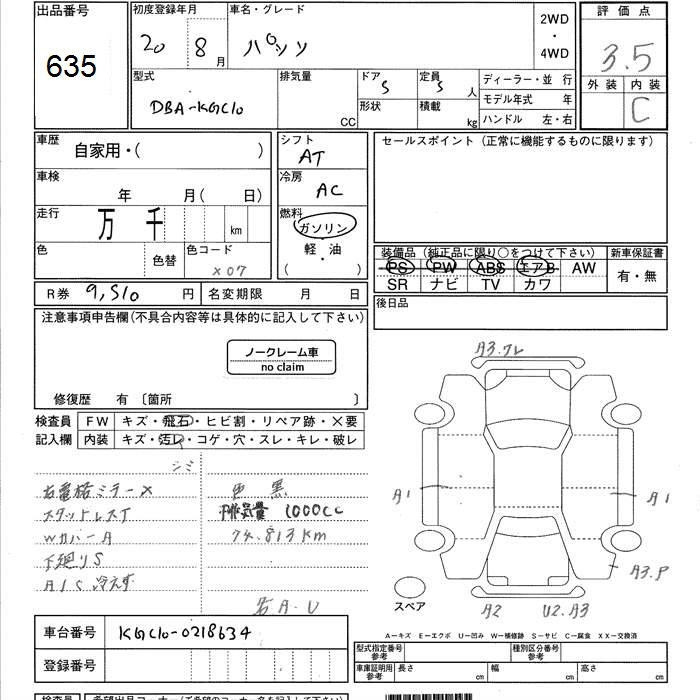 出品番号
635
初度登録年月
20 8月
車名・グレード
パッソ
2WD
・
4WD
評価点
3.5
外装 内装
C
型式
DBA-KGC10
排気量
CC
ドア
5
定員
5人
形状
積載
kg
ディーラー・並行
モデル年式 年
ハンドル 左・右
車歴
自家用・( )
車検
年 月( 日)
走行
万 千 km
色
色替
色コード
X07
シフト
AT
冷房
AC
燃料
ガソリン
・
軽油
( )
セールスポイント(正常に機能するものに限ります)
装備品(純正品に限り○をつけて下さい)
PS PW ABS エアB AW
SR ナビ TV カワ
新車保証書
有・無
後日品
R券 9,510 円
名変期限 月 日
注意事項申告欄(不具合内容等は具体的に記入して下さい)
ノークレーム車
no claim
修復歴 有 〔箇所 〕
検査員
記入欄
FW キズ・飛石・ヒビ割・リペア跡・×要
内装 キズ・汚レ・コゲ・穴・スレ・キレ・破レ
シミ
右電格ミラー×
スタットレスT
WカバーA
下廻りS
A/C 冷えず
色 黒
排気量 1000CC
74,813km
右A・U
A3.ワレ
A1
A1
A3.P
A2
U2.A3
スペア
車台番号
KGC10-0218634
登録番号
A−キズ E−エクボ U−凹み W−補修跡 S−サビ C−腐食 XX−交換済
型式指定番号
参考
種別区分番号
参考
車庫証明用
参考
長さ cm
幅 cm
高さ cm
検査員
希望出品コーナー(ご希望のコーナー名を記入